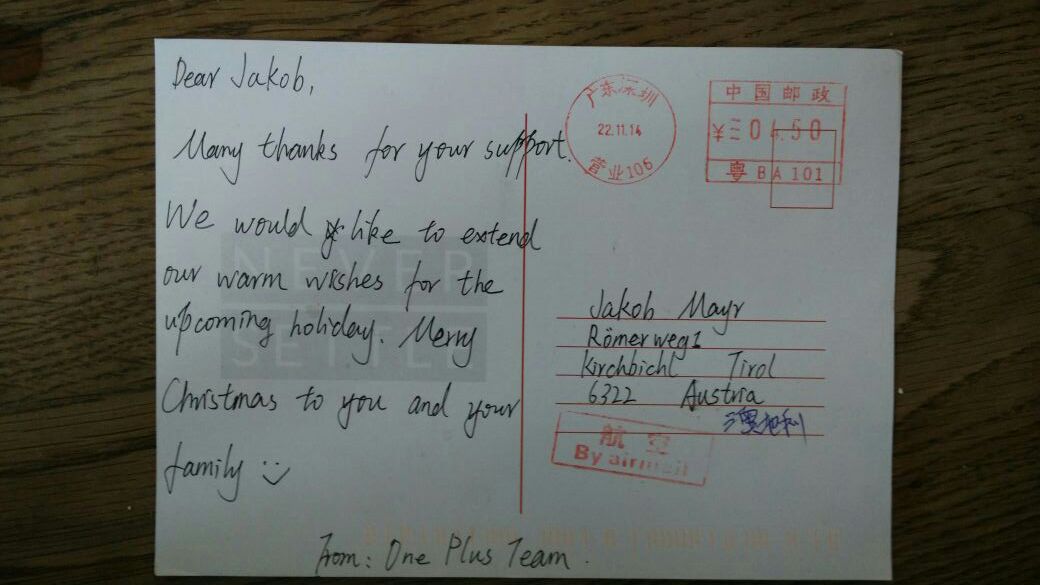 Dear Jakob,
Many thanks for your support.
We would like to extend
our warm wishes for the
upcoming holiday. Merry
Christmas to you and your
family :)
From: One Plus Team.
NEVER
SETTLE
广东深圳
22.11.14
营业106
中国邮政
¥ 04.50
粤 BA101
Jakob Mayr
Römerweg1
Kirchbichl Tirol
6322 Austria
澳地利
航空
By airmail